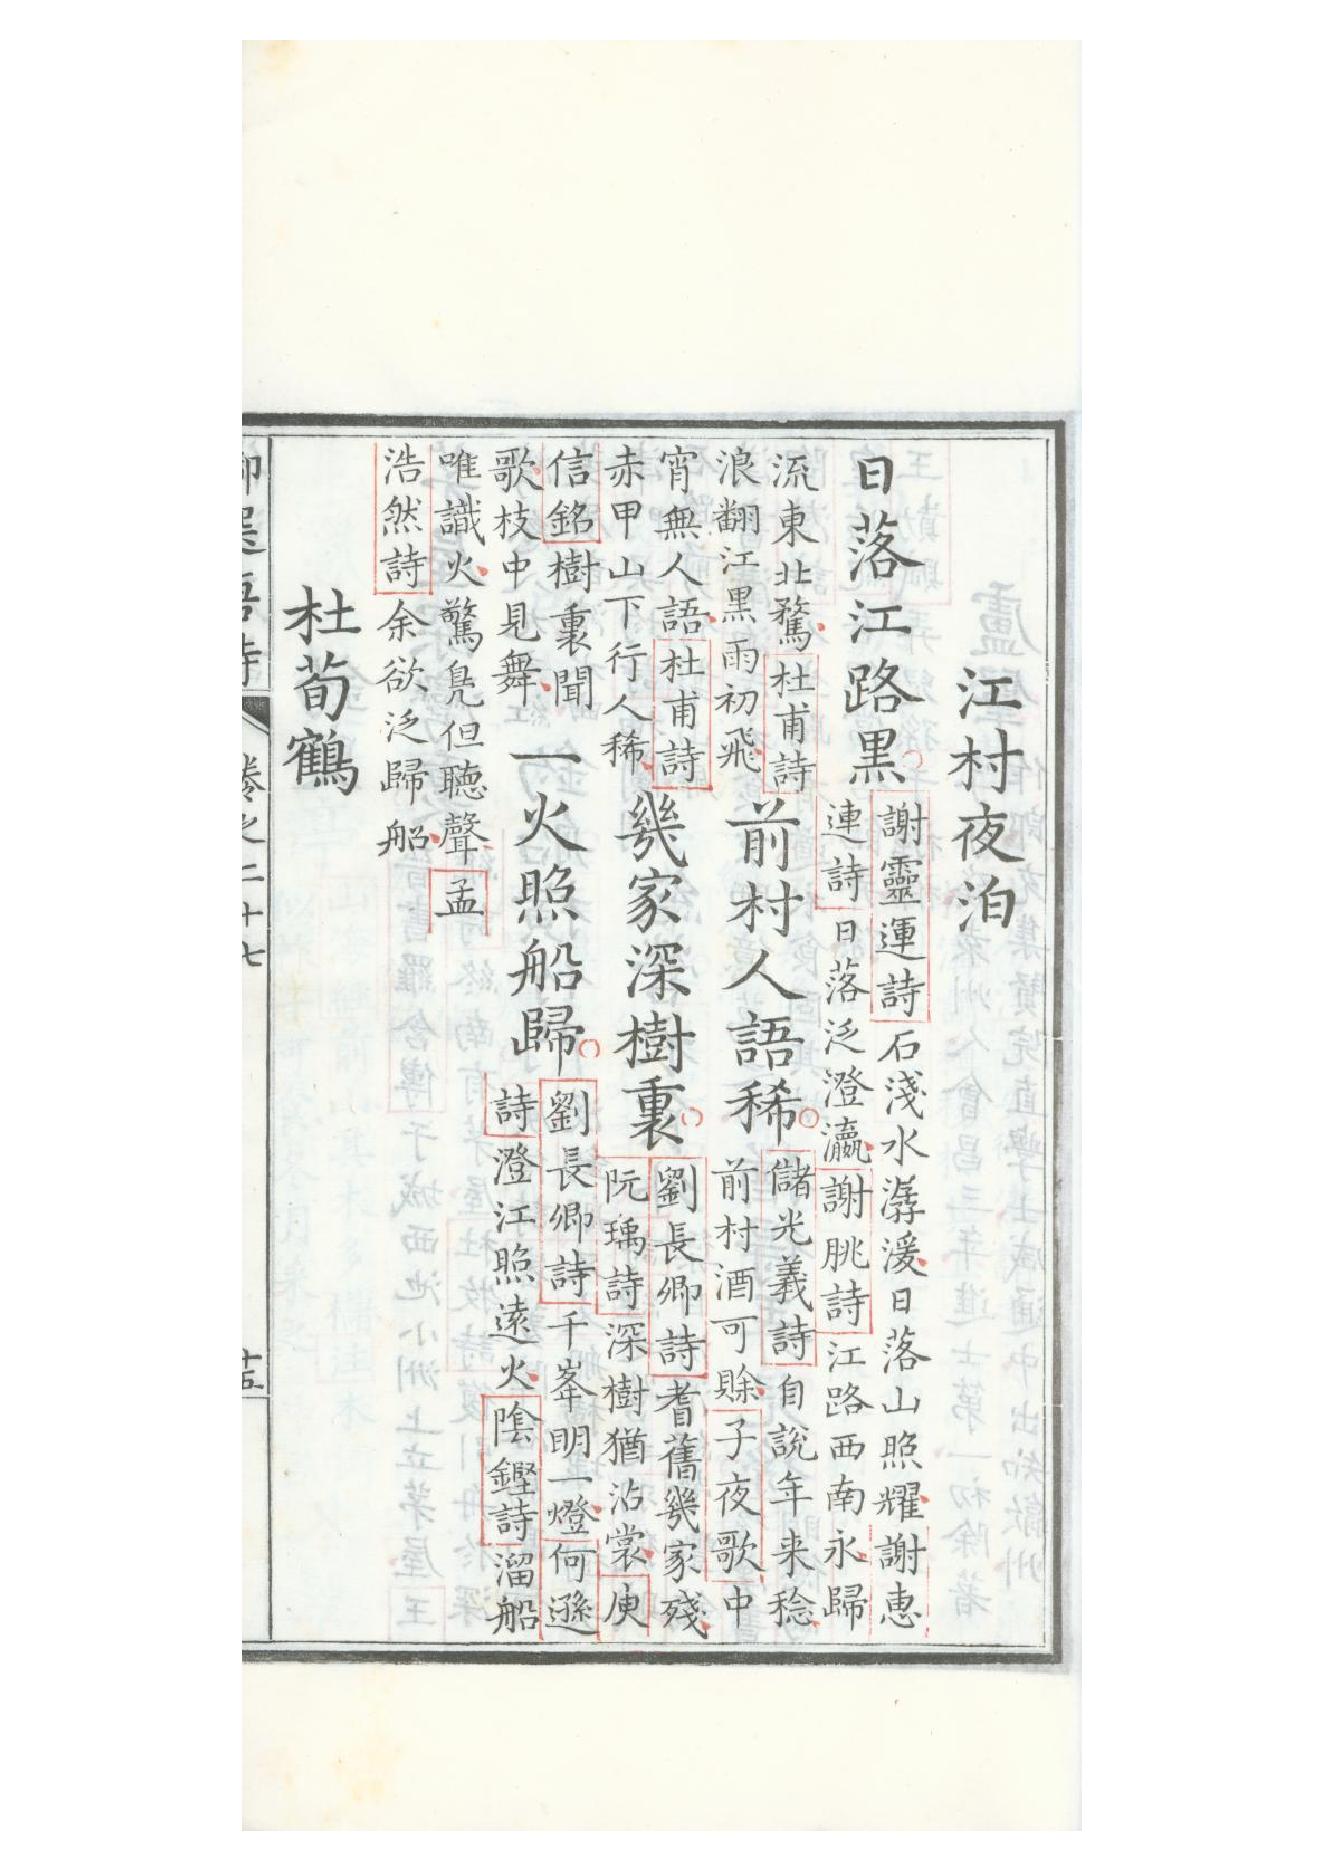 江村夜泊
日落江路黒
謝靈運詩石淺水潺湲日落山照耀謝惠
連詩日落泛澄瀛謝朓詩江路西南永歸
流東北騖杜甫詩
浪翻江黒雨初飛
前村人語稀
儲光義詩自說年来稔
前村酒可賒子夜歌中
宵無人語杜甫詩
赤甲山下行人稀
幾家深樹裏
劉長卿詩耆舊幾家殘
阮瑀詩深樹猶沾裳庾
信銘樹裏聞
歌枝中見舞
一火照船歸
劉長卿詩千峯明一燈何遜
詩澄江照遠火陰鏗詩溜船
唯識火驚鳧但聽聲孟
浩然詩余欲泛歸船
杜荀鶴
卷之二十七
十五